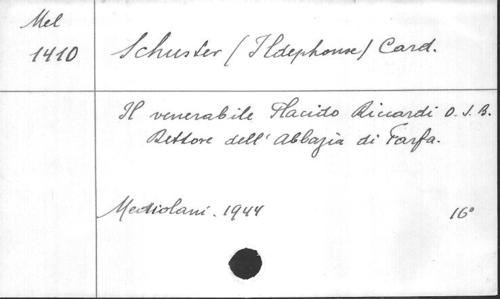 Mel
1410
Schuster (Ildephonse) Card.
Il venerabile Placido Riccardi O.S.B.
Rettore dell'Abbazia di Farfa.
Mediolani. 1944
16°